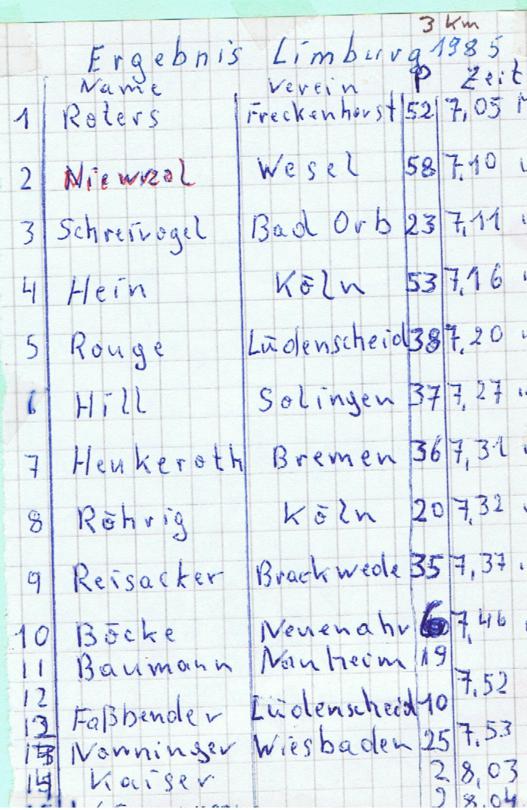 3 km
Ergebnis Limburg 1985
Name Verein P Zeit
1 Roters Freckenhorst 52 7,05
2 Niewzol Wesel 58 7,10
3 Schreivogel Bad Orb 23 7,11
4 Hein Köln 53 7,16
5 Rouge Lüdenscheid 38 7,20
6 Hill Solingen 37 7,27
7 Heukeroth Bremen 36 7,31
8 Röhrig Köln 20 7,32
9 Reisacker Brackwede 35 7,37
10 Böcke Neuenahr 6 7,46
11 Baumann Nauheim 19
12 7,52
13 Faßbender Lüdenscheid 10
Nonninger Wiesbaden 25 7,53
Kaiser 2 8,03
8,04